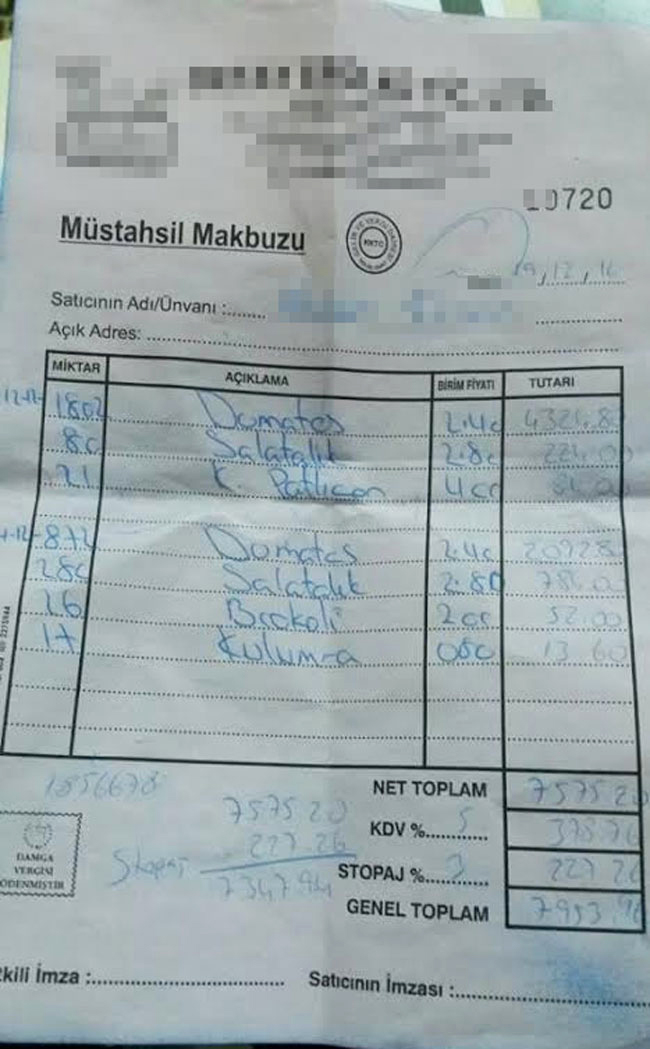 10720
Müstahsil Makbuzu
KKTC
19,12,16
Satıcının Adı/Ünvanı :
Açık Adres:
MİKTAR AÇIKLAMA BİRİM FİYATI TUTARI
1802 Domates 2.40 4324.80
80 Salatalık 2.80 224.00
21 K. Patlıcan 4 00 84.00
872 Domates 2.40 2092.8
280 Salatalık 2.80 784.00
26 Brokoli 2 00 52.00
17 Kulumra 080 13.60
NET TOPLAM 7575 20
7575 20
KDV %5 378.76
227.26
STOPAJ %3 227 26
Stopaj 7347.94
GENEL TOPLAM 7953.96
DAMGA
VERGİSİ
ÖDENMİŞTİR
kili İmza : Satıcının İmzası :